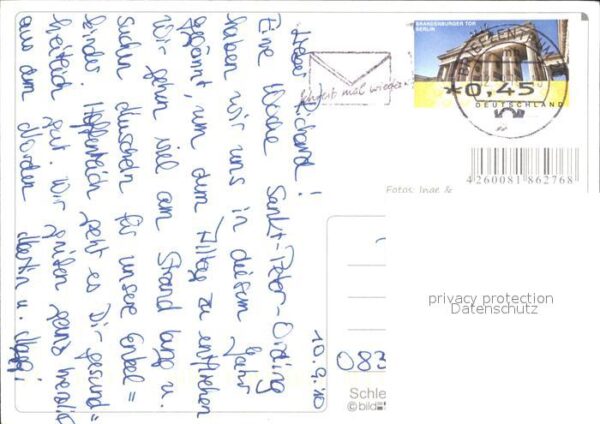 10.9.10
Lieber Richard!
Eine Woche Sankt-Peter-Ording
haben wir uns in diesem Jahr
gegönnt, um dem Alltag zu entfliehen
Wir gehen viel am Strand lang u.
suchen Muscheln für unsere Enkel=
kinder. Hoffentlich geht es Dir gesund=
heitlich gut. Wir grüßen ganz herzlich
aus dem Norden Martin u.
BRANDENBURGER TOR
BERLIN
*0,45
DEUTSCHLAND
Schreib mal wieder
4260081862768
Fotos: Inge &
privacy protection
Datenschutz
083
Schle
© bild